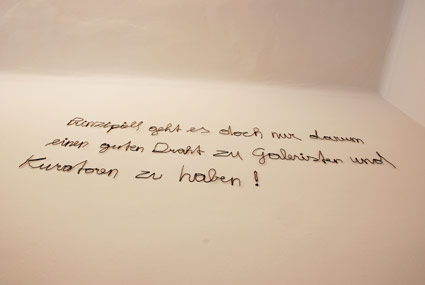 Prinzipiell geht es doch nur darum
einen guten Draht zu Galeristen und
Kuratoren zu haben!